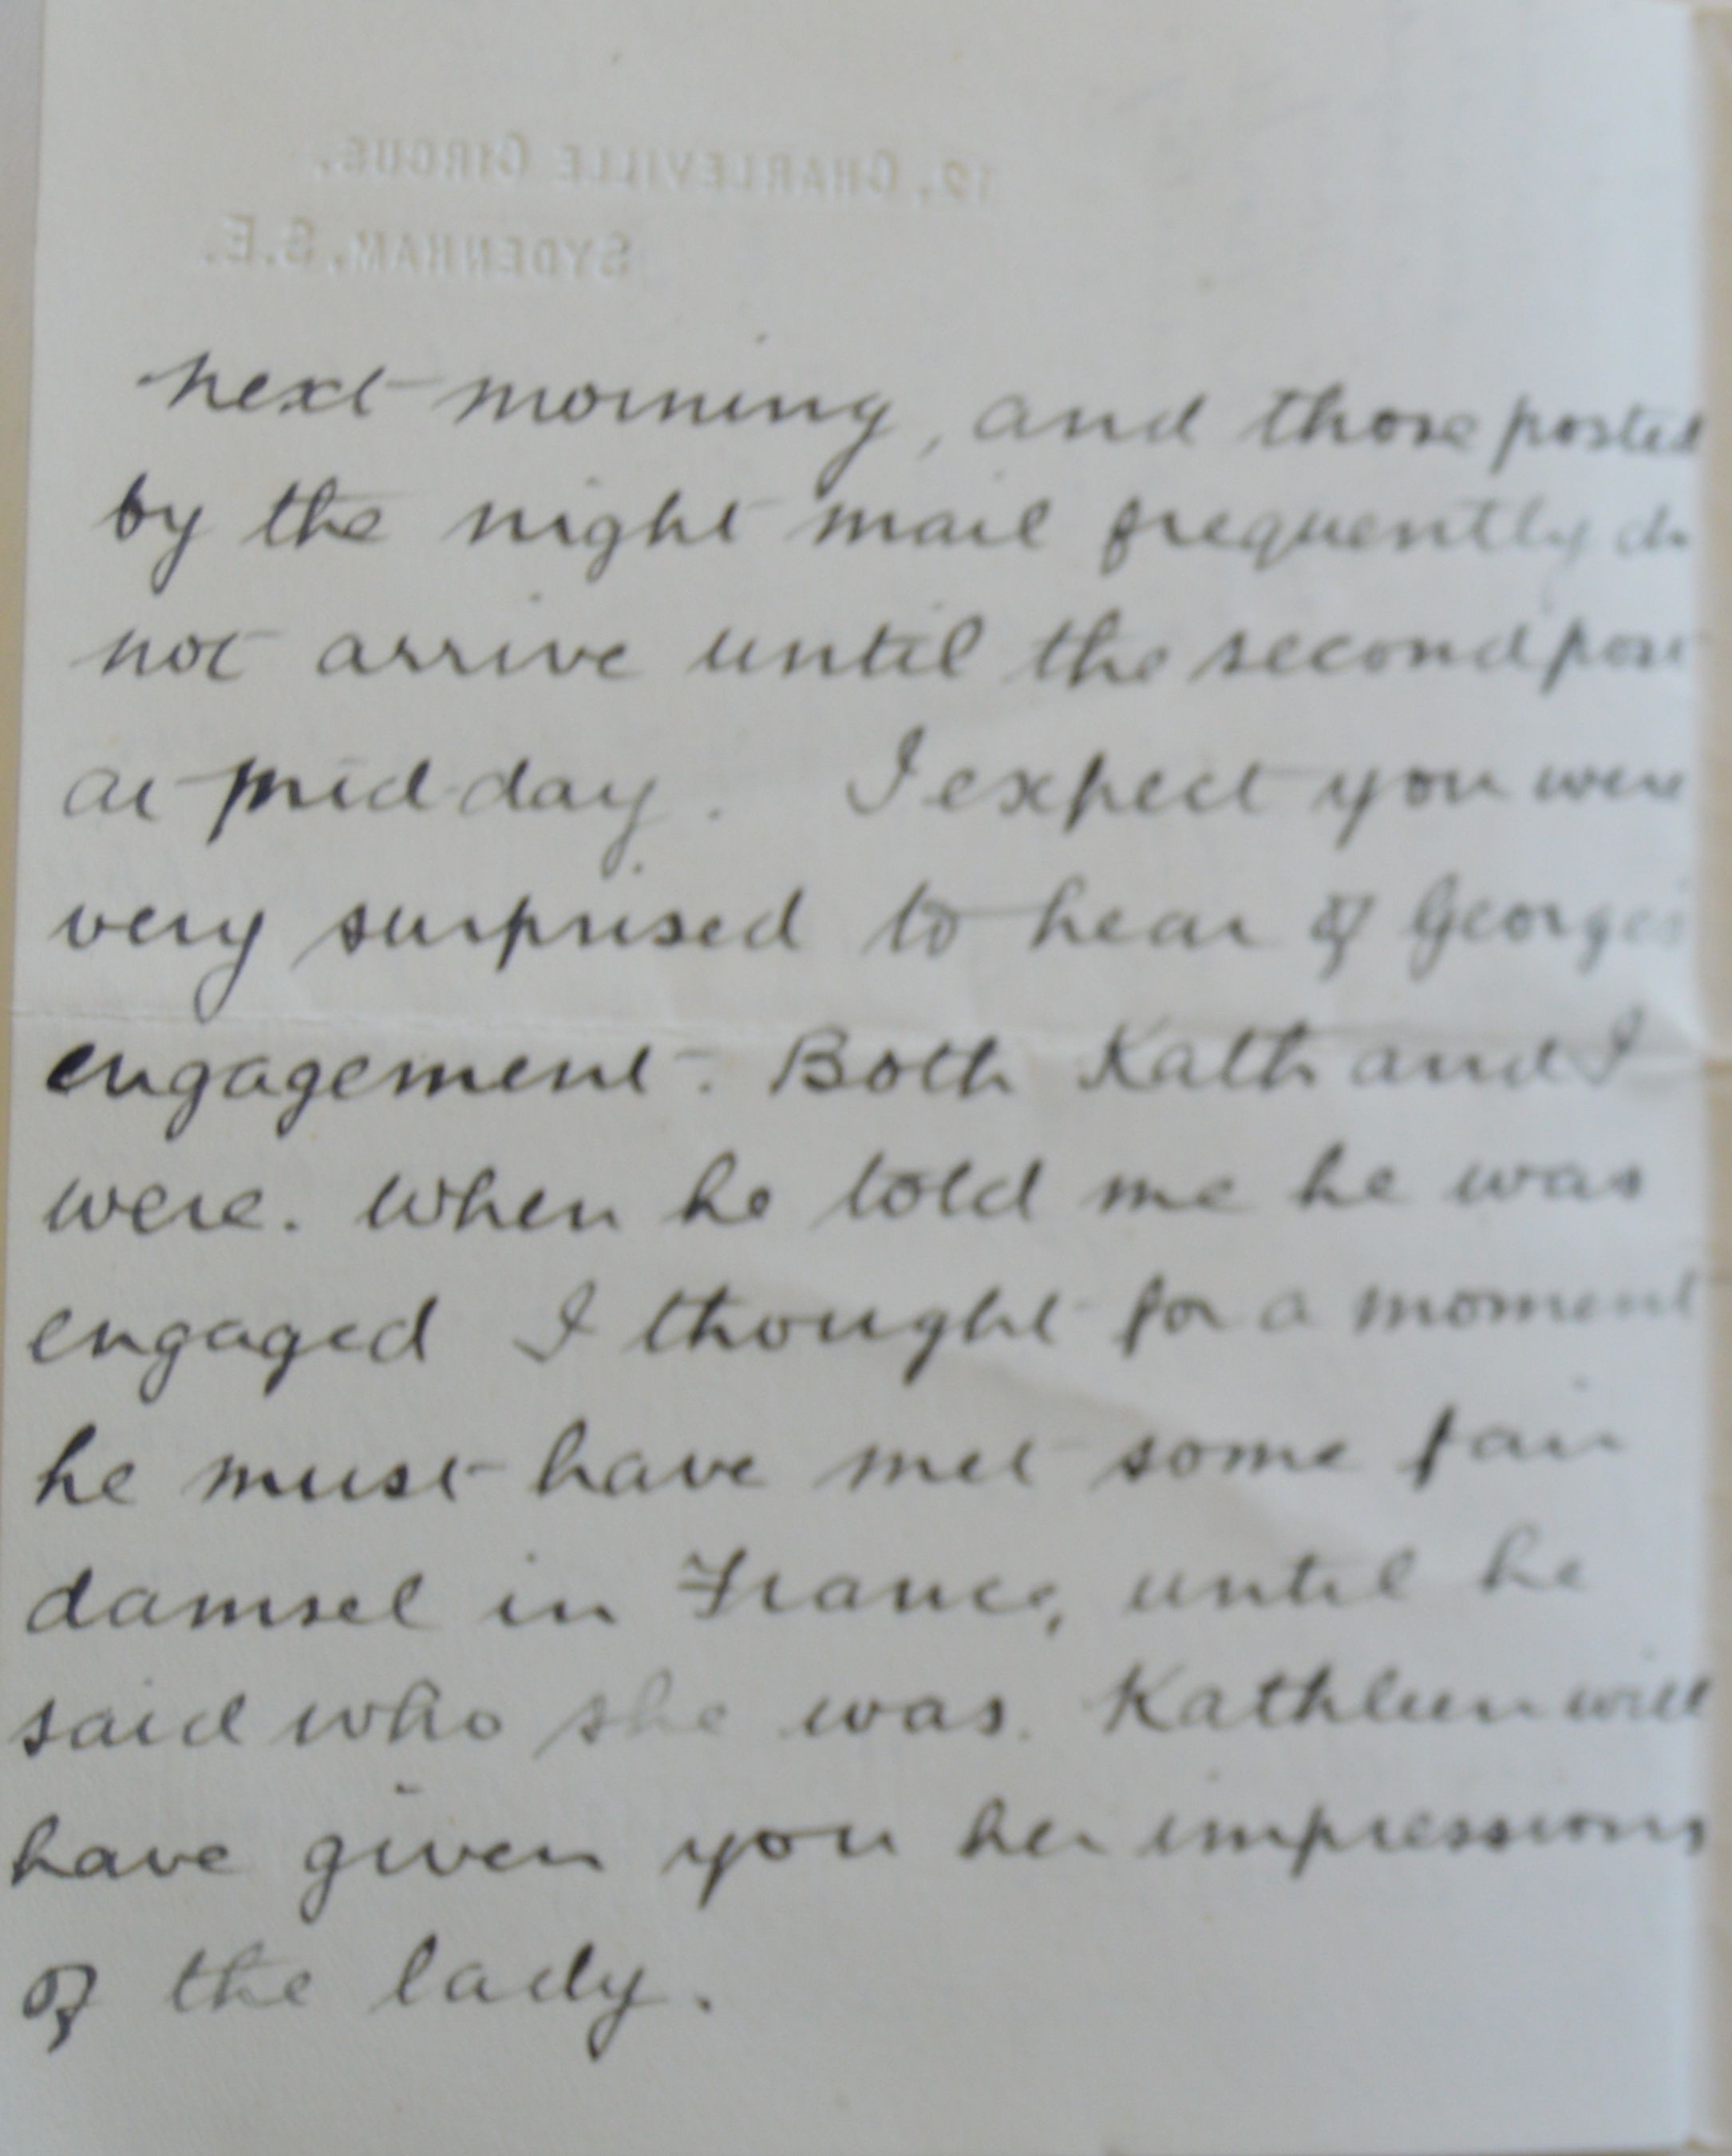 12, CHARLEVILLE CIRCUS,
SYDENHAM, S.E.
next morning, and those posted
by the night mail frequently do
not arrive until the second post
at mid-day. I expect you were
very surprised to hear of George's
engagement. Both Kath and I
were. When he told me he was
engaged I thought for a moment
he must have met some fair
damsel in France, until he
said who she was. Kathleen will
have given you her impressions
of the lady.